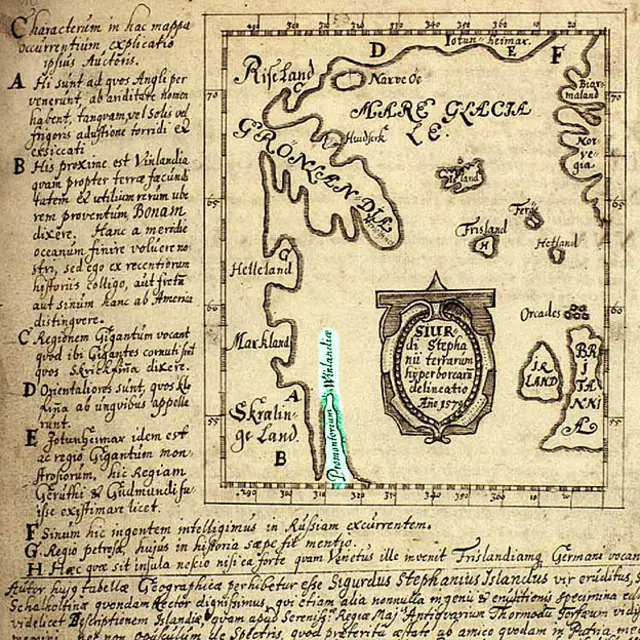 Characterum in hac mappa
occurrentium explicatio
ipsius Auctoris.
A Hi sunt ad quos Angli per
venerunt, ab ariditate nomen
habent, tanquam vel Solis vel
frigoris adustione torridi et
exsiccati
B His proxime est Vinlandia
quam propter terræ fæcundi
tatem et utilium rerum ube
rem proventum Bonam
dixere. Hanc a meridie
oceanum finire voluere no
stri, sed ego ex recentiorum
historiis colligo, aut fretum
aut sinum hanc ab America
distinguere.
C Regionem Gigantum vocant
quod ibi Gigantes cornuti sint
quos Skrickfinna dixere.
D Orientaliores sunt, quos Klo
fina ab unguibus appella
runt.
E Jotunheimar idem est
ac regio Gigantum mon
strosorum, hic Regiam
Geruthi et Gudmundi fu
isse existimare licet.
F Sinum hic ingentem intelligimus in Russiam excurrentem.
G Regio petrosa, hujus in historia sæpe fit mentio.
H Hæc quæ sit insula nescio nisi ea forte quam Venetus ille invenit Frislandiamq Germani vocan
Autor hujus tabellæ Geographicæ perhibetur esse Sigurdus Stephanius Islandus vir eruditus,
Schalholtinæ quondam Rector dignissimus, qui etiam alia nonnulla ingenii et eruditionis specimina
videlicet Descriptionem Islandiæ quam apud Sereniss: Regiæ Maj: Antiqvarium Thormodu Torfæum
opusculum de Spectris, quod præterita æstate ab amico quodam in Patria
D Jotun heimar. E F
Riseland
C
Narve Oe
Biar
maland
MARE GLACIA
LE.
GRONLANDIA
Huidserk
Nor
ve
gia
Island
Frisland
H
Ferö
Hetland
G
Helleland
Orcades
Markland
SIUR
di Stepha
nii terrarum
hyperborearu
delineatio
Año 1570
IR
LAND
BRI
TA
NNI
A
A
Skralin
ge Land
B
Promontorium Winlandiæ
290 300 310 320 330 340 350
70 65 60 55